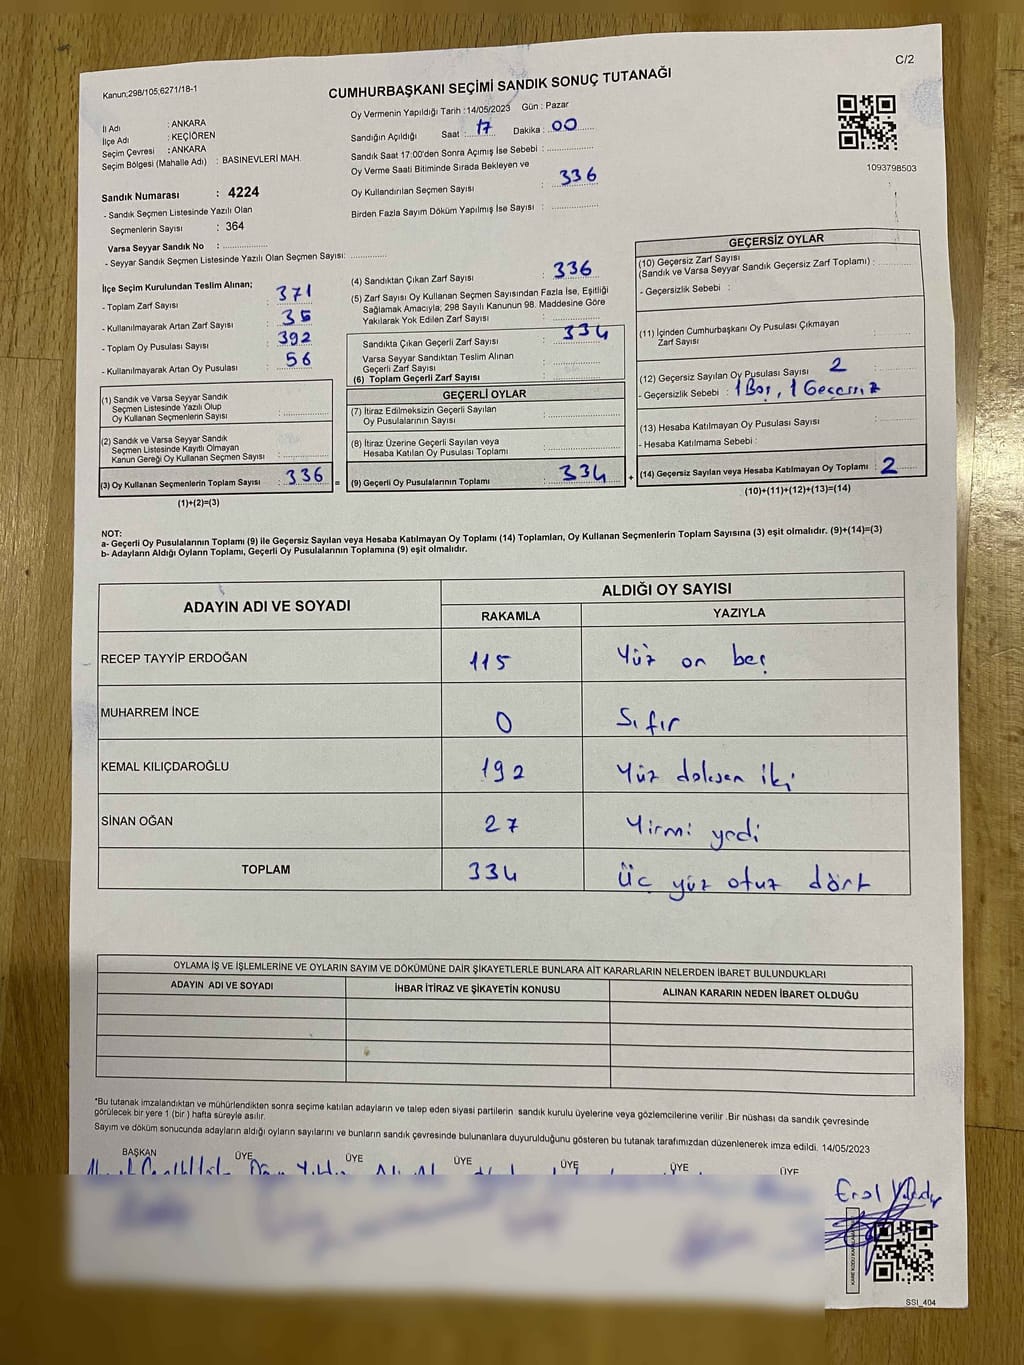 C/2
Kanun;298/105,6271/18-1
CUMHURBAŞKANI SEÇİMİ SANDIK SONUÇ TUTANAĞI
İl Adı : ANKARA
İlçe Adı : KEÇİÖREN
Seçim Çevresi : ANKARA
Seçim Bölgesi (Mahalle Adı) : BASINEVLERİ MAH.
Sandık Numarası : 4224
- Sandık Seçmen Listesinde Yazılı Olan
Seçmenlerin Sayısı : 364
Varsa Seyyar Sandık No : ...............
- Seyyar Sandık Seçmen Listesinde Yazılı Olan Seçmen Sayısı: ............
Oy Vermenin Yapıldığı Tarih :14/05/2023 Gün : Pazar
Sandığın Açıldığı Saat : 17 Dakika : 00
Sandık Saat 17:00'den Sonra Açımış İse Sebebi : ...............
Oy Verme Saati Bitiminde Sırada Bekleyen ve
Oy Kullandırılan Seçmen Sayısı : 336
Birden Fazla Sayım Döküm Yapılmış İse Sayısı : ...............
1093798503
İlçe Seçim Kurulundan Teslim Alınan;
- Toplam Zarf Sayısı : 371
- Kullanılmayarak Artan Zarf Sayısı : 35
- Toplam Oy Pusulası Sayısı : 392
- Kullanılmayarak Artan Oy Pusulası : 56
(1) Sandık ve Varsa Seyyar Sandık
Seçmen Listesinde Yazılı Olup
Oy Kullanan Seçmenlerin Sayısı : ...............
(2) Sandık ve Varsa Seyyar Sandık
Seçmen Listesinde Kayıtlı Olmayan
Kanun Gereği Oy Kullanan Seçmen Sayısı : ...............
(3) Oy Kullanan Seçmenlerin Toplam Sayısı : 336 =
(1)+(2)=(3)
(4) Sandıktan Çıkan Zarf Sayısı : 336
(5) Zarf Sayısı Oy Kullanan Seçmen Sayısından Fazla İse, Eşitliği
Sağlamak Amacıyla; 298 Sayılı Kanunun 98. Maddesine Göre
Yakılarak Yok Edilen Zarf Sayısı : ...............
Sandıkta Çıkan Geçerli Zarf Sayısı : 334
Varsa Seyyar Sandıktan Teslim Alınan
Geçerli Zarf Sayısı : ...............
(6) Toplam Geçerli Zarf Sayısı : ...............
GEÇERLİ OYLAR
(7) İtiraz Edilmeksizin Geçerli Sayılan
Oy Pusulasının Sayısı : ...............
(8) İtiraz Üzerine Geçerli Sayılan veya
Hesaba Katılan Oy Pusulası Toplamı : ...............
(9) Geçerli Oy Pusulalarının Toplamı : 334 +
GEÇERSİZ OYLAR
(10) Geçersiz Zarf Sayısı
(Sandık ve Varsa Seyyar Sandık Geçersiz Zarf Toplamı) : ...............
- Geçersizlik Sebebi :
(11) İçinden Cumhurbaşkanı Oy Pusulası Çıkmayan
Zarf Sayısı : ...............
(12) Geçersiz Sayılan Oy Pusulası Sayısı : 2
- Geçersizlik Sebebi : 1 Boş, 1 Geçersiz
(13) Hesaba Katılmayan Oy Pusulası Sayısı : ...............
- Hesaba Katılmama Sebebi :
(14) Geçersiz Sayılan veya Hesaba Katılmayan Oy Toplamı : 2
(10)+(11)+(12)+(13)=(14)
NOT:
a- Geçerli Oy Pusulalarının Toplamı (9) ile Geçersiz Sayılan veya Hesaba Katılmayan Oy Toplamı (14) Toplamları, Oy Kullanan Seçmenlerin Toplam Sayısına (3) eşit olmalıdır. (9)+(14)=(3)
b- Adayların Aldığı Oyların Toplamı, Geçerli Oy Pusulalarının Toplamına (9) eşit olmalıdır.
ADAYIN ADI VE SOYADI ALDIĞI OY SAYISI
RAKAMLA YAZIYLA
RECEP TAYYİP ERDOĞAN 115 Yüz on beş
MUHARREM İNCE 0 Sıfır
KEMAL KILIÇDAROĞLU 192 Yüz doksan iki
SİNAN OĞAN 27 Yirmi yedi
TOPLAM 334 Üç yüz otuz dört
OYLAMA İŞ VE İŞLEMLERİNE VE OYLARIN SAYIM VE DÖKÜMÜNE DAİR ŞİKAYETLERLE BUNLARA AİT KARARLARIN NELERDEN İBARET BULUNDUKLARI
ADAYIN ADI VE SOYADI İHBAR İTİRAZ VE ŞİKAYETİN KONUSU ALINAN KARARIN NEDEN İBARET OLDUĞU
*Bu tutanak imzalandıktan ve mühürlendikten sonra seçime katılan adayların ve talep eden siyasi partilerin sandık kurulu üyelerine veya gözlemcilerine verilir .Bir nüshası da sandık çevresinde
görülecek bir yere 1 (bir ) hafta süreyle asılır.
Sayım ve döküm sonucunda adayların aldığı oyların sayılarını ve bunların sandık çevresinde bulunanlara duyurulduğunu gösteren bu tutanak tarafımızdan düzenlenerek imza edildi. 14/05/2023
BAŞKAN ÜYE ÜYE ÜYE ÜYE ÜYE ÜYE
Erol
SSI_404